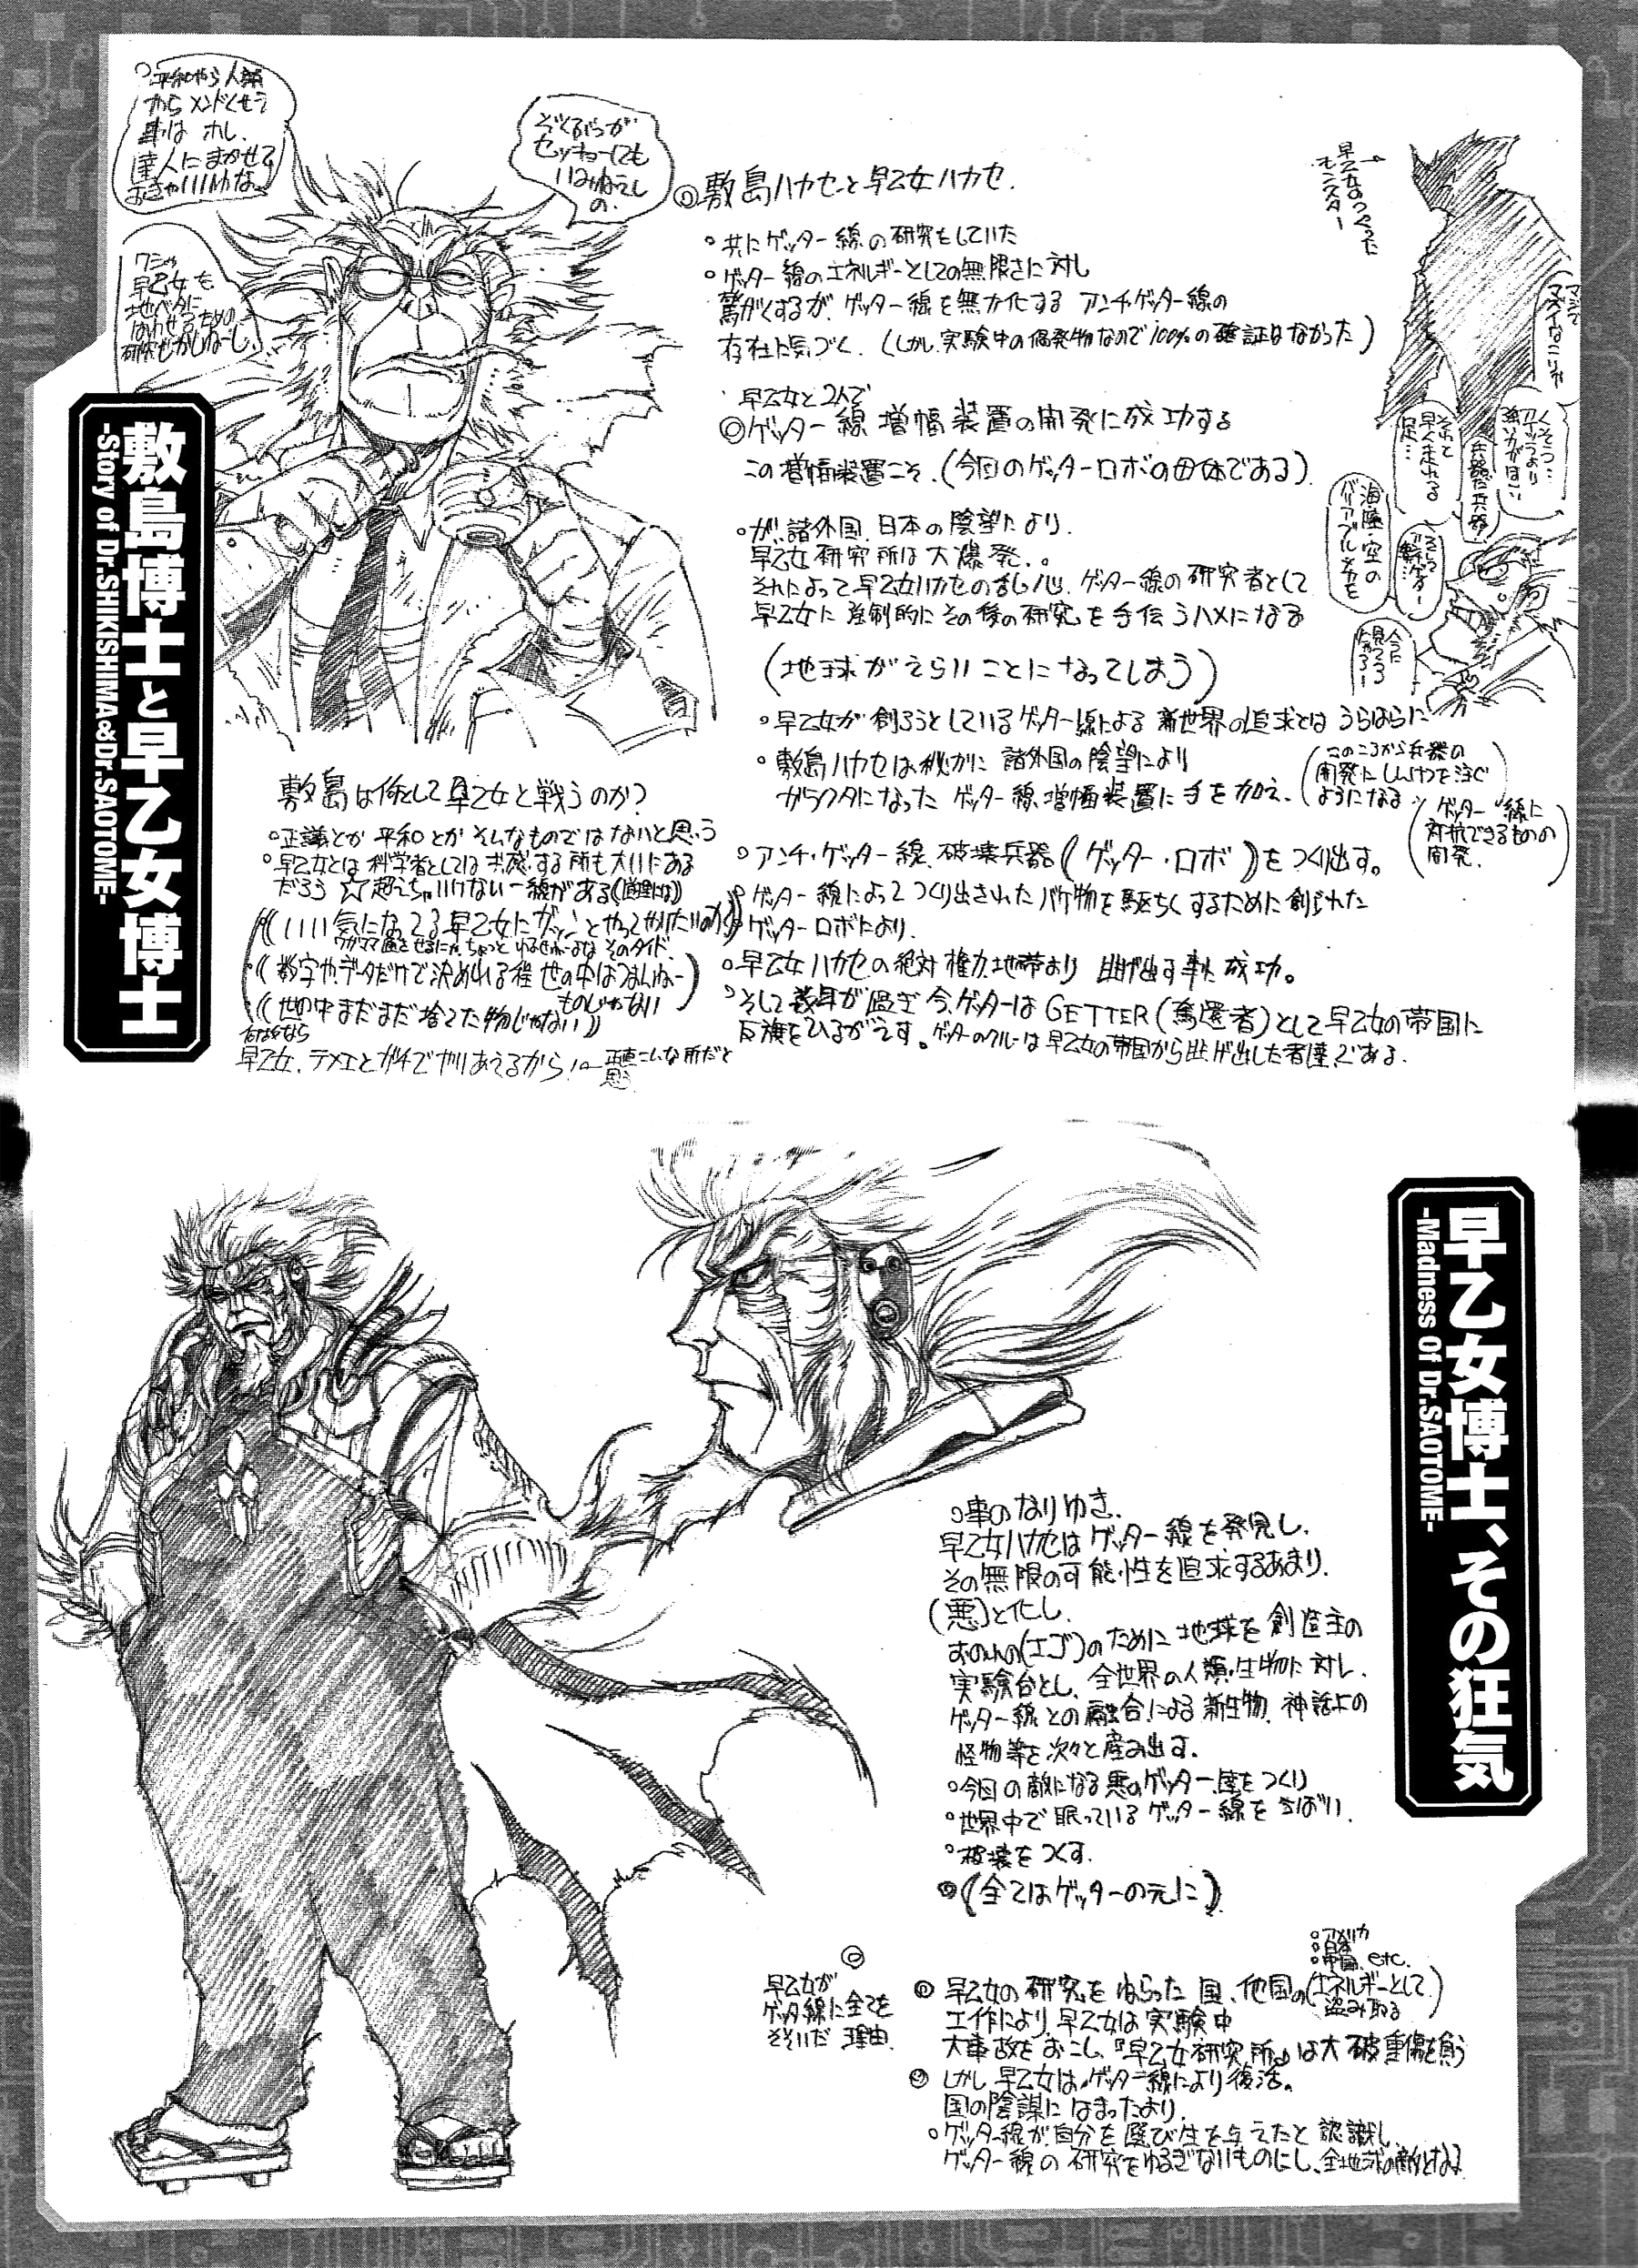 敷島博士と早乙女博士
-Story of Dr.SHIKISHIMA&Dr.SAOTOME-
平和やら人類
からメンドくせう
事は ホレ、
達人にまかせて
おきゃいいわな
ワシゃ
早乙女を
地ベタに
はわせるための
研究しかしねーし、
ぞくぶつが
セッキョーしても
いみねえし
の.
◎敷島ハカセと早乙女ハカセ.
○共にゲッター線の研究をしていた
○ゲッター線のエネルギーとしての無限さに対し
驚がくするが、ゲッター線を無力化する アンチ・ゲッター線の
存在に気づく. (しかし、実験中の偶発物なので100%の確証はなかった)
早乙女と2人で
◎ゲッター線増幅装置の開発に成功する
この増幅装置こそ.(今回のゲッターロボの母体である).
○が、諸外国、日本の陰望により.
早乙女研究所は大爆発.。
それによって早乙女ハカセの乱心. ゲッター線の研究者として
早乙女に強制的にその後の研究を手伝うハメになる
(地球がえらいことになってしまう)
○早乙女が創ろうとしているゲッター線による 新世界の追求とは うらはらに
○敷島ハカセは、秘かに 諸外国の陰望により
ガラクタになった ゲッター線増幅装置に手を加え、
(このころから兵器の
開発に心血を注ぐ
ようになる)
(ゲッター線に
対抗できるものの
開発.)
○アンチ・ゲッター線、破壊兵器(ゲッター・ロボ)をつくり出す。
○ゲッター線によってつくり出されたバケ物を駆ちくするために創られた
○ゲッターロボにより.
○早乙女ハカセの絶対権力地帯より 逃げ出す事に成功。
○そして数年が過ぎ 今、ゲッターはGETTER(奪還者)として早乙女の帝国に
反旗をひるがえす。ゲッターのクルーは早乙女の帝国から逃げ出した者達である.
早乙女のつくった
モンスター
マジで
マズイなこりゃ
くそっ…
アイツより
強い力がほしい
兵器だ兵器
それと
早く走れる
足…
海・陸・空の
バリアブルメカを
敷島は何として早乙女と戦うのか?
○正義とか平和とかそんなものではないと思う
○早乙女とは科学者としては共感する所も大いにある
だろう ☆超えちゃいけない一線がある
((いい気になってる早乙女にガツンとやってやりたいのか))
((数字やデータだけで決められる程 世の中はつまんねー
ものじゃない
((世の中まだまだ捨てた物じゃない))
なぜなら
早乙女、テメエとガチでやりあえるから!○ 正直こんな所だと
思う
早乙女博士、その狂気
-Madness Of Dr.SAOTOME-
○事のなりゆき.
早乙女ハカセはゲッター線を発見し、
その無限の可能性を追求するあまり.
(悪)と化し.
おのれの(エゴ)のために地球を創造主の
実験台とし、全世界の人類・生物に対し、
ゲッター線との融合による新生物、神話上の
怪物等を次々と産み出す.
○今回の敵になる悪のゲッター軍をつくり
○世界中で眠っているゲッター線をうばい.
○破壊をつくす.
◎(全てはゲッターの元に)
◎
早乙女が
ゲッタ線に全てを
そそいだ 理由.
○アメリカ
○日本
○中国、etc.
① 早乙女の研究をねらった国、他国の(エネルギーとして
盗み取る)
工作により、早乙女は実験中
大事故をおこし、『早乙女研究所』は大破 重傷を負う
② しかし早乙女は、ゲッター線により復活。
国の陰謀にはまったより.
○ゲッター線が自分を選び生を与えたと 認識し、
ゲッター線の研究をゆるぎないものにし、全地球の敵となる